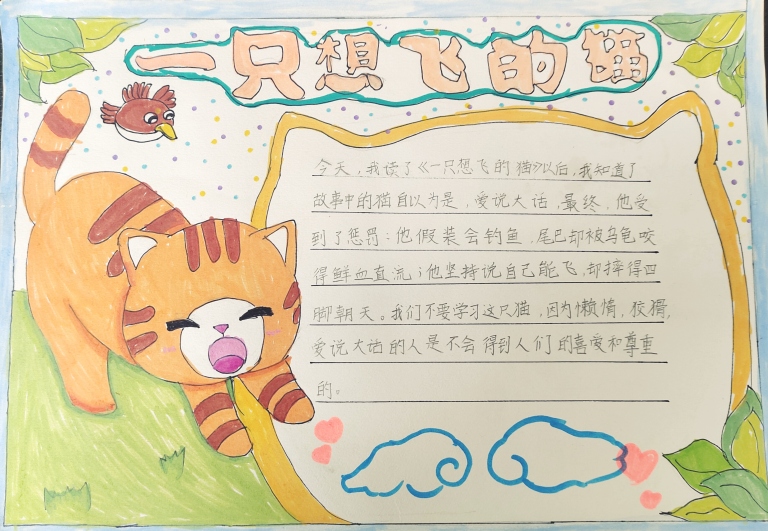 一只想飞的猫
今天，我读了《一只想飞的猫》以后，我知道了
故事中的猫自以为是，爱说大话，最终，他受
到了惩罚：他假装会钓鱼，尾巴却被乌龟咬
得鲜血直流；他坚持说自己能飞，却摔得四
脚朝天。我们不要学习这只猫，因为懒惰，狡猾，
爱说大话的人是不会得到人们的喜爱和尊重
的。